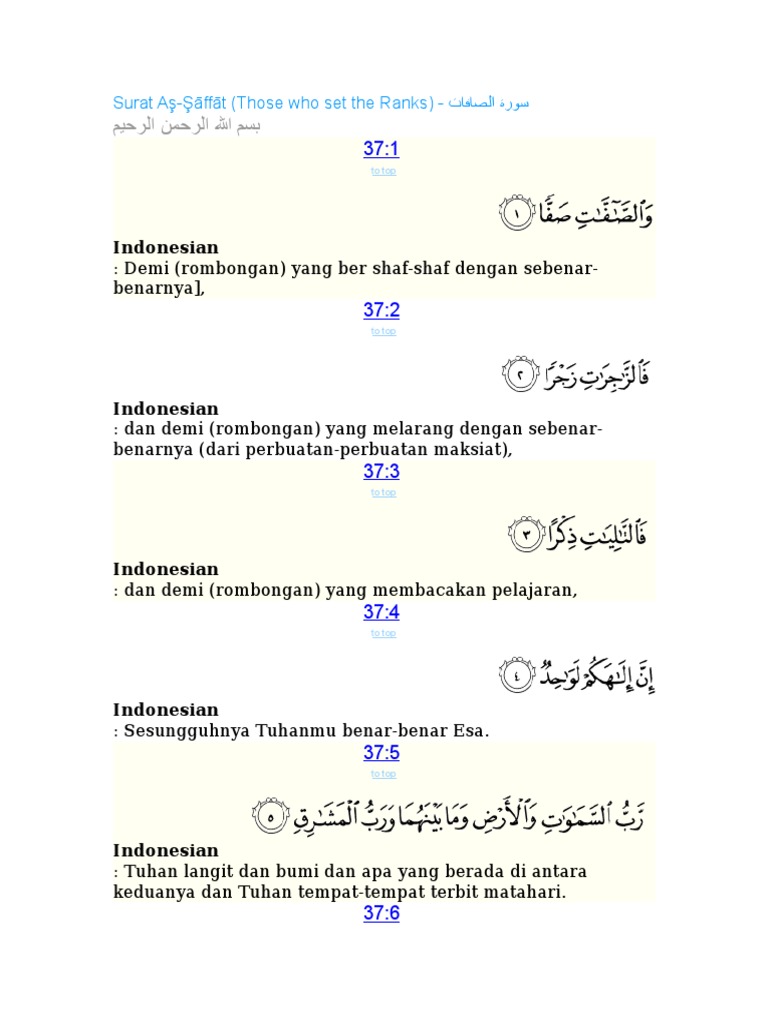 Surat Aş-Şāffāt (Those who set the Ranks) - سورة الصافات
بسم الله الرحمن الرحيم
37:1
to top
وَٱلصَّـٰٓفَّـٰتِ صَفًّا ١
Indonesian
: Demi (rombongan) yang ber shaf-shaf dengan sebenar-
benarnya],
37:2
to top
فَٱلزَّٲجِرَٲتِ زَجْرًا ٢
Indonesian
: dan demi (rombongan) yang melarang dengan sebenar-
benarnya (dari perbuatan-perbuatan maksiat),
37:3
to top
فَٱلتَّـٰلِيَـٰتِ ذِكْرًا ٣
Indonesian
: dan demi (rombongan) yang membacakan pelajaran,
37:4
to top
إِنَّ إِلَـٰهَكُمْ لَوَٲحِدٌ ٤
Indonesian
: Sesungguhnya Tuhanmu benar-benar Esa.
37:5
to top
رَّبُّ ٱلسَّمَـٰوَٲتِ وَٱلْأَرْضِ وَمَا بَيْنَهُمَا وَرَبُّ ٱلْمَشَـٰرِقِ ٥
Indonesian
: Tuhan langit dan bumi dan apa yang berada di antara
keduanya dan Tuhan tempat-tempat terbit matahari.
37:6